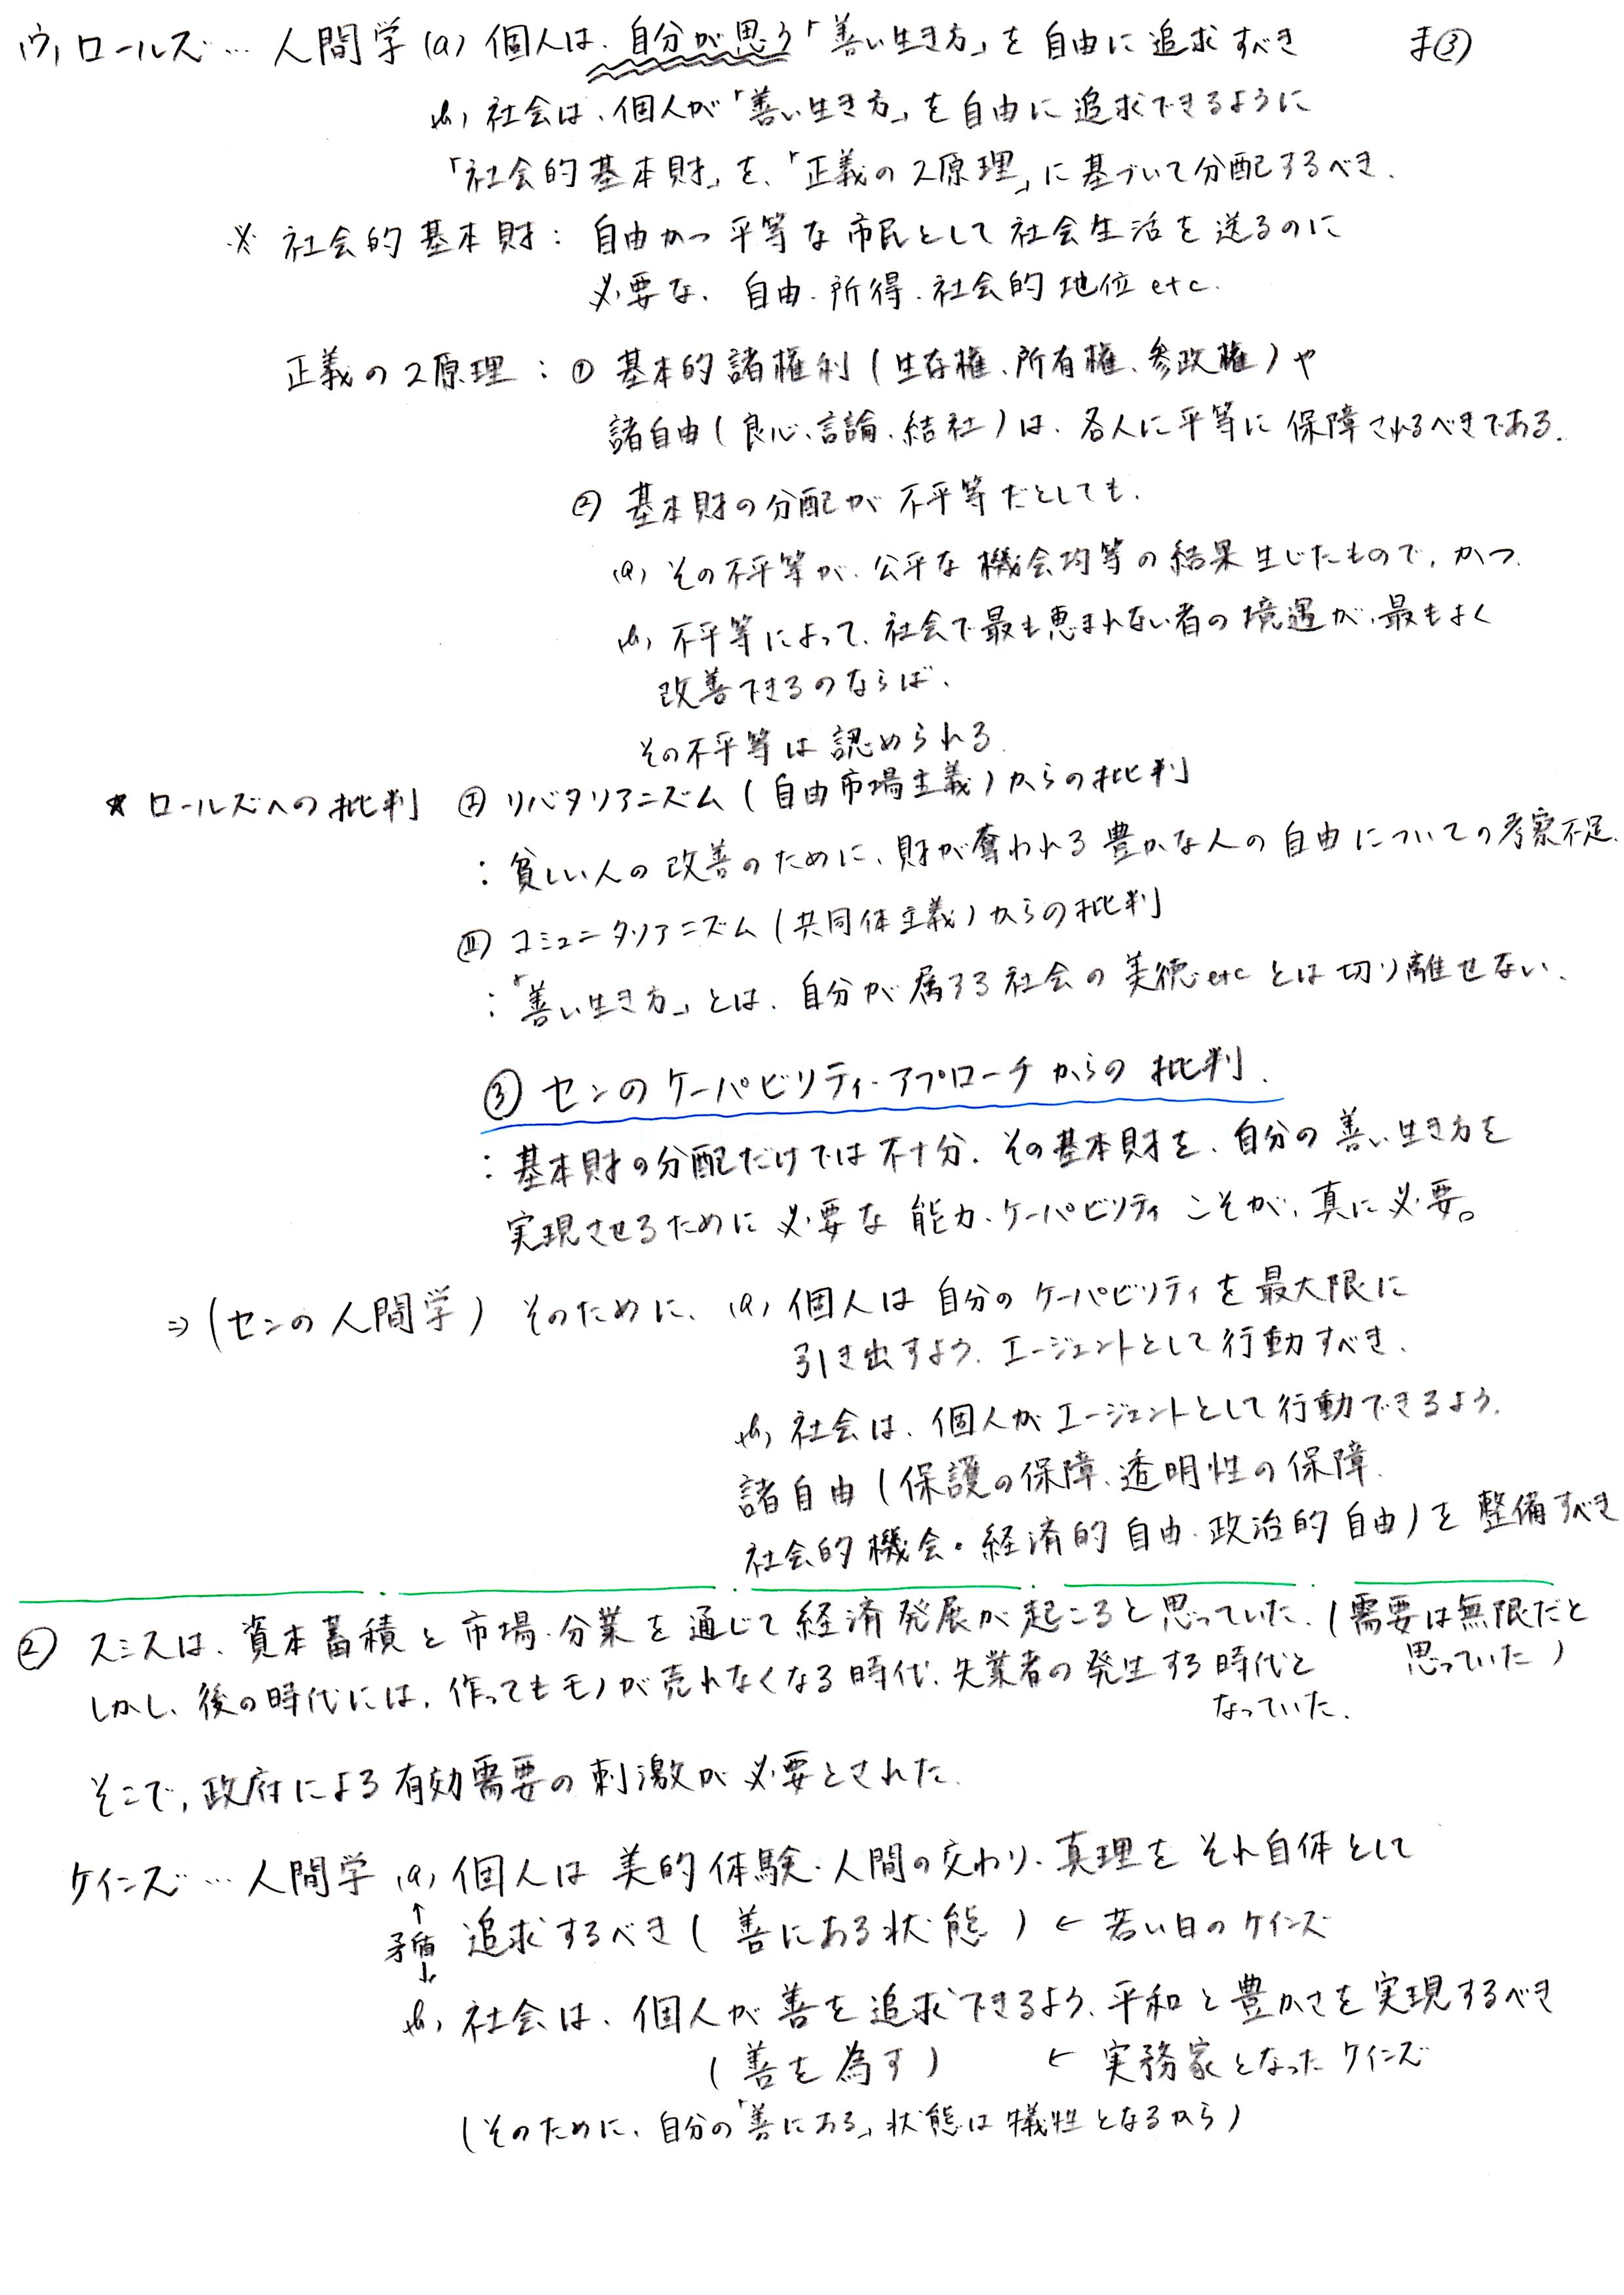 (ウ) ロールズ… 人間学 (a) 個人は、自分が思う「善い生き方」を自由に追求すべき ま③
(b) 社会は、個人が「善い生き方」を自由に追求できるように
「社会的基本財」を、「正義の2原理」に基づいて分配するべき.
※ 社会的基本財: 自由かつ平等な市民として社会生活を送るのに
必要な、自由・所得・社会的地位etc.
正義の2原理: ① 基本的諸権利(生存権、所有権、参政権)や
諸自由(良心、言論、結社)は、各人に平等に保障されるべきである.
② 基本財の分配が不平等だとしても、
(a) その不平等が、公平な機会均等の結果生じたもので、かつ、
(b) 不平等によって、社会で最も恵まれない者の境遇が、最もよく
改善できるのならば、
その不平等は認められる.
★ ロールズへの批判 Ⓘ リバタリアニズム(自由市場主義)からの批判
: 貧しい人の改善のために、財が奪われる豊かな人の自由についての考察不足.
Ⅱ コミュニタリアニズム(共同体主義)からの批判
: 「善い生き方」とは、自分が属する社会の美徳etcとは切り離せない.
③ センのケーパビリティ・アプローチからの批判.
: 基本財の分配だけでは不十分. その基本財を、自分の善い生き方を
実現させるために必要な能力・ケーパビリティこそが、真に必要。
⇒ (センの人間学) そのために、(a) 個人は自分のケーパビリティを最大限に
引き出すよう、エージェントとして行動すべき.
(b) 社会は、個人がエージェントとして行動できるよう、
諸自由(保護の保障、透明性の保障、
社会的機会・経済的自由・政治的自由)を整備すべき
② スミスは、資本蓄積と市場・分業を通じて経済発展が起こると思っていた.(需要は無限だと
思っていた)
しかし、後の時代には、作ってもモノが売れなくなる時代、失業者の発生する時代と
なっていた.
そこで、政府による有効需要の刺激が必要とされた.
ケインズ… 人間学 (a) 個人は美的体験・人間の交わり・真理をそれ自体として
↑
矛盾
↓
追求するべき(善にある状態) ← 若い日のケインズ
(b) 社会は、個人が善を追求できるよう、平和と豊かさを実現するべき
(善を為す) ← 実務家となったケインズ
(そのために、自分の「善にある」状態は犠牲となるから)